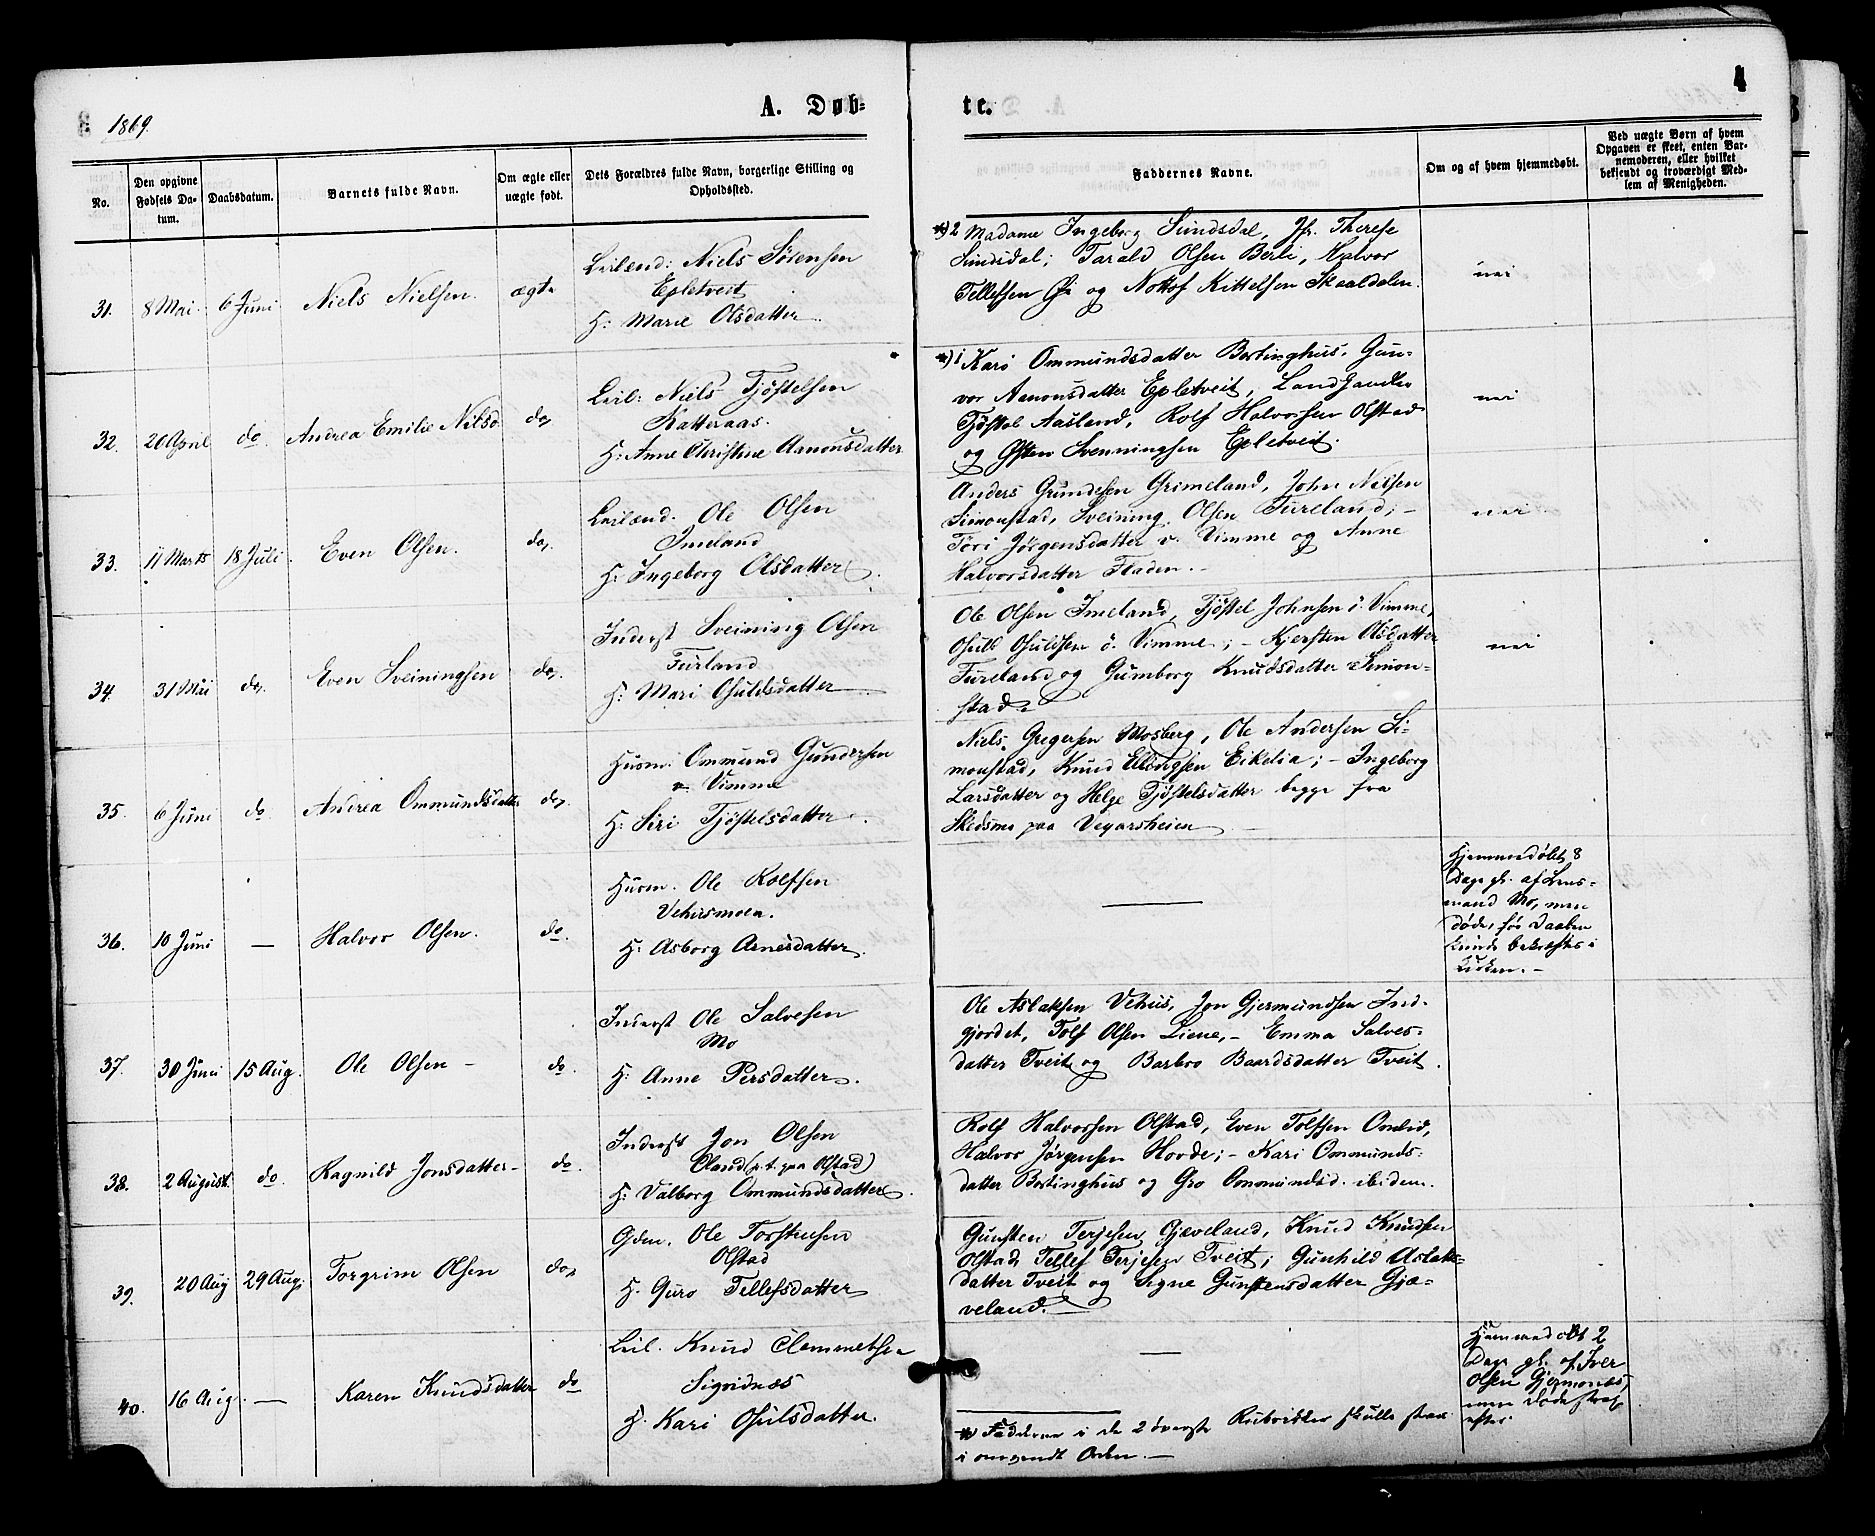 1869.
A. Døb-
te.
4
No.
Den opgivne Fødsels Da-tum.
Daabsdatum.
Barnets fulde Navn.
Om ægte eller uægte født.
Dets Forældres fulde Navn, borgerlige Stilling og Opholdssted.
Faddernes Navne.
Om og af hvem hjemmedøbt.
Ved uægte Børn af hvem Opgaven er skeet, enten Bar-nemoderen, eller hvilket bekjendt og troværdigt Med-lem af Menigheden.
31. 8 Mai. 6 Juni Niels Nielsen. ægte
Leilænd: Niels Sørensen
Epletveit
H: Marie Olsdatter
*) 2 Madame Ingeborg Sundsdal, Jfr. Therese
Sundsdal; Tarald Olsen Berli, Halvor
Tellefsen Øi og Nottof Kittelsen Skaaldalen.
nei
32. 20 April do. Andrea Emilie Nilsd. do,
Leil: Niels Tjøstelsen
Katteraas.
H: Anne Christine Aanonsdatter
*) 1 Kari Ommundsdatter Bertinghus, Gun-
vor Aanonsdatter Epletveit, Landhandler
Tjøstel Aasland, Rolf Halvorsen Olstad
og Østen Svenningsen Epletveit.
nei
33. 11 Marts 18 Juli. Even Olsen. do,
Leilænd. Ole Olsen
Imeland
H: Ingeborg Olsdatter.
Anders Gundesen Grimeland, John Nilsen
Simonstad, Sveining Olsen Tureland; -
Tøri Jørgensdatter v. Vimme og Anne
Halvorsdatter Fladen. -
nei
34. 31 Mai do. Even Sveiningsen do,
Inderst Sveining Olsen
Turland
H: Mari Osuldsdatter
Ole Olsen Imeland, Tjøstel Johnsen ö. Vimme,
Osuld Osuldsen ö. Vimme; - Kjersten Olsdatter
Tureland og Gumborg Knudsdatter Simon-
stad.
nei
35. 6 Juni do Andrea Ommundsdatter do,
Husm. Ommund Gundersen
v. Vimme
H: Siri Tjøstelsdatter.
Niels Gregersen Mosberg, Ole Andersen Si-
monstad, Knud Ellevigsen Eikelia; - Ingeborg
Larsdatter og Helge Tjøstelsdatter begge fra
Skedsmo paa Vegarsheien
36. 10 Juni — Halvor Olsen. do.
Husm. Ole Rolfsen
Vehusmoen.
H: Asborg Arnesdatter.
—
Hjemmedøbt 8
Dage gl. af Lens-
mand Mo, men
døde, før Daaben
kunde bekræftes i
Kirken. -
37. 30 Juni 15 Aug. Ole Olsen - do.
Inderst Ole Salvesen
Mo
H: Anne Persdatter.
Ole Aslaksen Vehus, Jon Gjermundsen Ind-
gjordet, Tolf Olsen Liene, - Emma Salves-
datter Tveit og Barbro Baardsdatter Tveit.
38. 2 August. do. Ragnild Jonsdatter - do.
Inderst Jon Olsen
Oland (p. t. paa Olstad)
H: Valborg Ommundsdatter.
Rolf Halvorsen Olstad, Even Tolfsen Omlid,
Halvor Jørgensen Hovde; - Kari Ommunds-
datter Bertinghus og Gro Ommundsd. ibidem.
39. 20 Aug 29 Aug. Torgrim Olsen do,
Gdm. Ole Torstensen
Olstad
H. Guro Tellefsdatter
Gunsten Terjesen Gjæveland, Knud Knudsen
Olstad, Tellef Terjesen Tveit; Gunhild Aslaks-
datter Tveit og Signe Gunstensdatter Gjæ-
veland.
40. 16 Aug. — Karen Knudsdatter do
Leil. Knud Clemmetsen
Sigridnæs
H. Kari Osulsdatter.
—
Hjemmedøbt 2
Dage gl. af Iver
Olsen Gjermonnæs,
men døde strax
efter
*) Fadderne i de 2 øverste Rubrikker skulle staa
i omvendt Orden. -